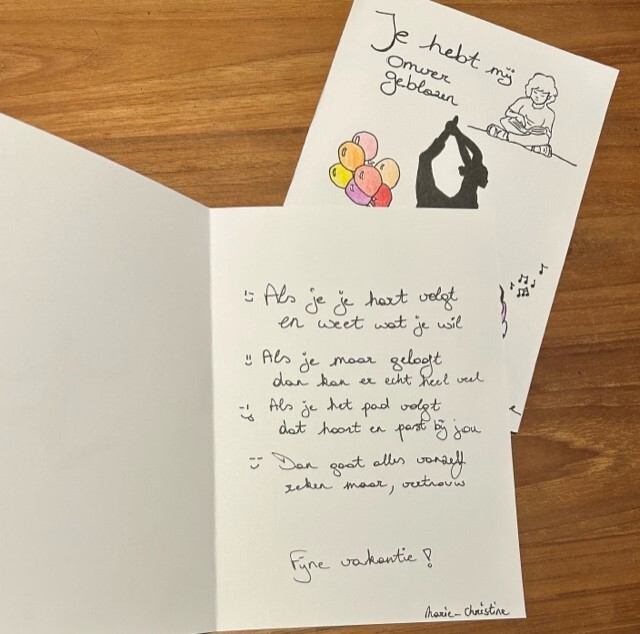 Je hebt mij
omver
geblazen
Als je je hart volgt
en weet wat je wil
Als je maar gelooft
dan kan er echt heel veel
Als je het pad volgt
dat hoort en past bij jou
Dan gaat alles vanzelf
zeker maar, vertrouw
Fijne vakantie!
Marie-Christine